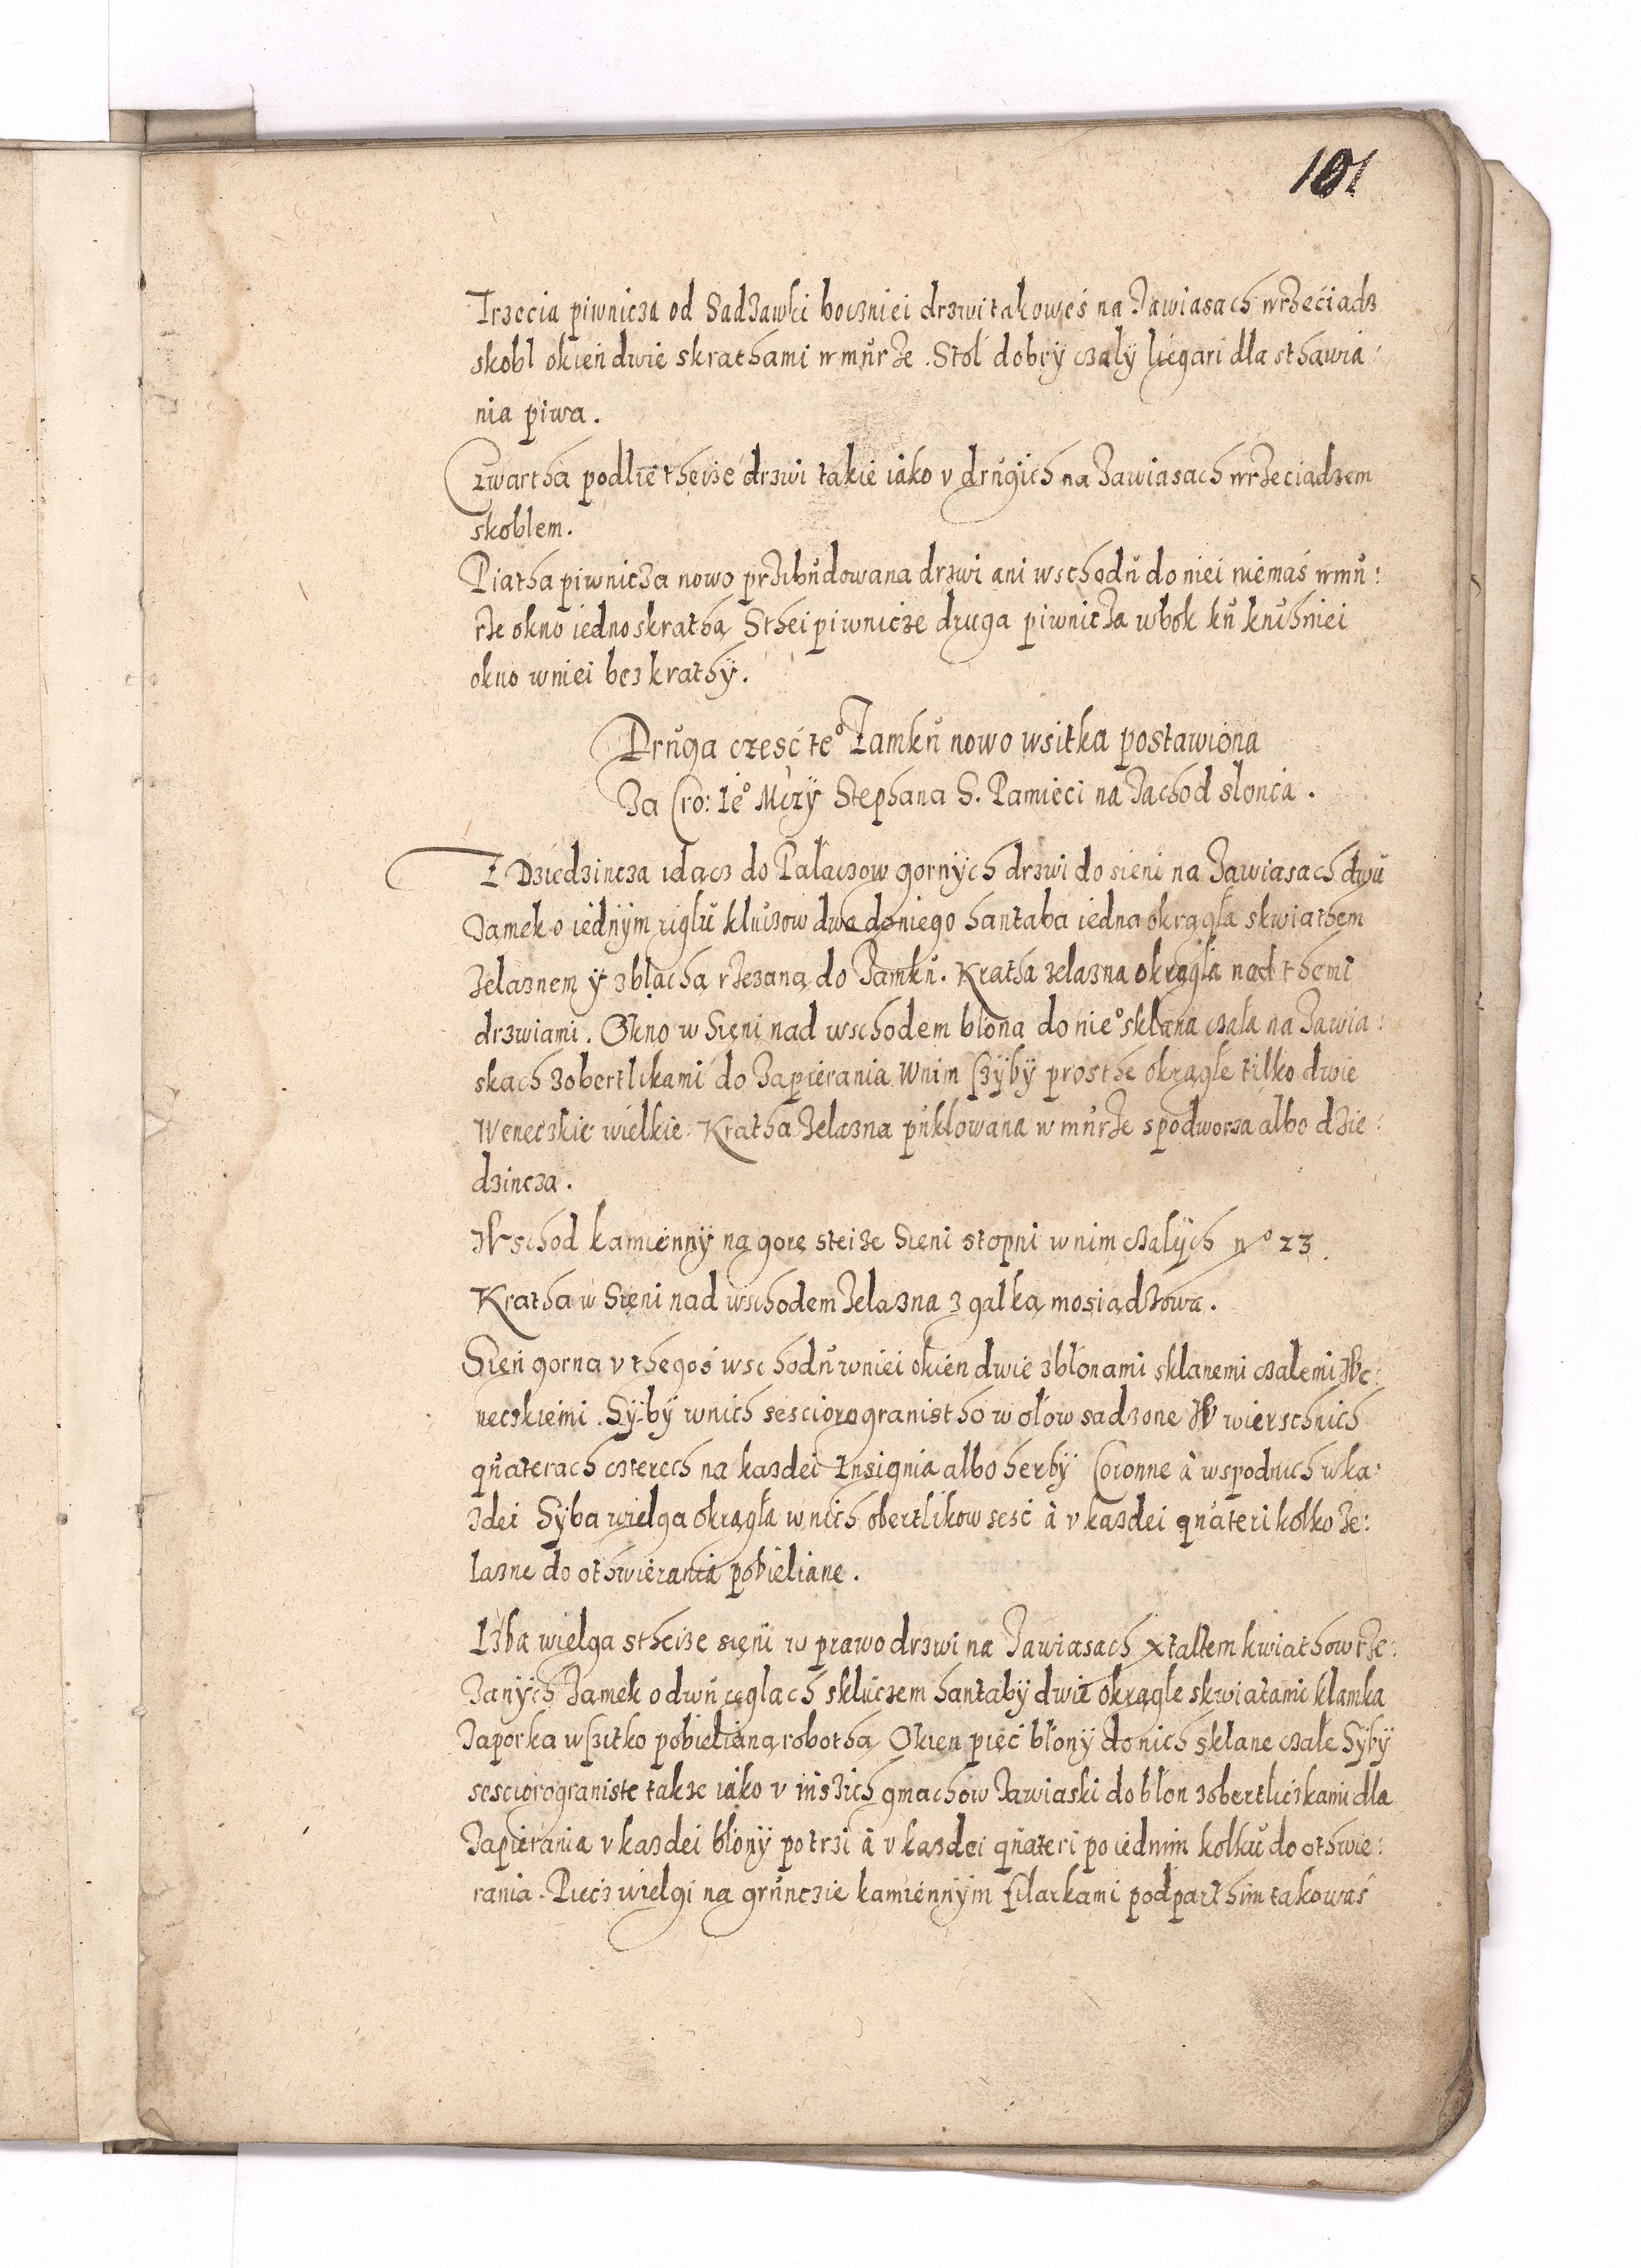 101
Trzecia piwnicza od Sadzawki boczniei drzwi takoweś na Zawiasach wrzeciadz
skobl okien dwie skrathami w mŭrze . Stol dobrÿ czalÿ liegari dla sthawia:
nia piwa.
Czwartha podlie theize drzwi takie iako v drŭgich na Zawiasach wrzeciadzem
skoblem.
Piatha piwnicza nowo przibŭdowana drzwi ani wschodŭ do niei niemaś w mŭ:
rze okno iedno skrathą Sthei piwnicze druga piwnicza wbok kŭ kŭchniei
okno w niei bez krathÿ.
Drŭga czesć te° Zamkŭ nowo wsitka postawiona
Za Cro: Ie° Mczÿ Stephana S. Pamieci na Zachod slonca .
Z Dziedzincza idącz do Pałaczow gornÿch drzwi do sieni na Zawiasach dwŭ
Zamek o iednÿm riglŭ kluczow dwa do niego hantaba iedna okrągła skwiathem
Zelaznem ÿ zblachą rzezaną do Zamkŭ. Kratha zelazna okrągla nad themi
drzwiami. Okno w Sięni nad wschodem błona do nie° sklana czała na Zawia:
skach zobertlikami do Zapierania Wnim szÿbÿ prosthe okrągłe tilko dwie
Weneczkie wielkie. Kratha Zelazna pŭklowana w mŭrze spodworza albo dzie:
dzincza.
Wschod kamiennÿ na gorę steize Sięni stopni w nim czalÿch n° 23.
Kratha w Sięni nad wschodem Zelazna z galką mosiądzową.
Sień gorna v thegoś wschodŭ w niei okien dwie zbłonami sklanemi czalemi We:
neczkiemi. Sÿbÿ w nich sesciorogranistho w ołow sadzone W wierschnich
qŭaterach czterech na kazdei Insignia albo herbÿ Coronne à w spodnich w ka:
zdei Sÿba wielga okrągła w nich obertlikow sesć à v kazdei qŭateri kołko ze:
lazne do othwierania pobieliane.
Izba wielga stheize sięni w prawo drzwi na Zawiasach xtałtem kwiathow rze:
Zanÿch Zamek o dwŭ ręglach sklŭczem hantabÿ dwie okrągłe skwiatami klamka
Zaporka wszitko pobielianą robothą Okien pięć błonÿ do nich sklane czałe Sÿbÿ
sesciorograniste takze iako v inszich gmachow Zawiaski do błon zobertliczkami dla
Zapierania v kazdei błonÿ po trzi à v kazdei qŭateri po iednim kołkŭ do othwie:
rania. Piecz wielgi na grŭnczie kamiennÿm filarkami podparthim takowaś